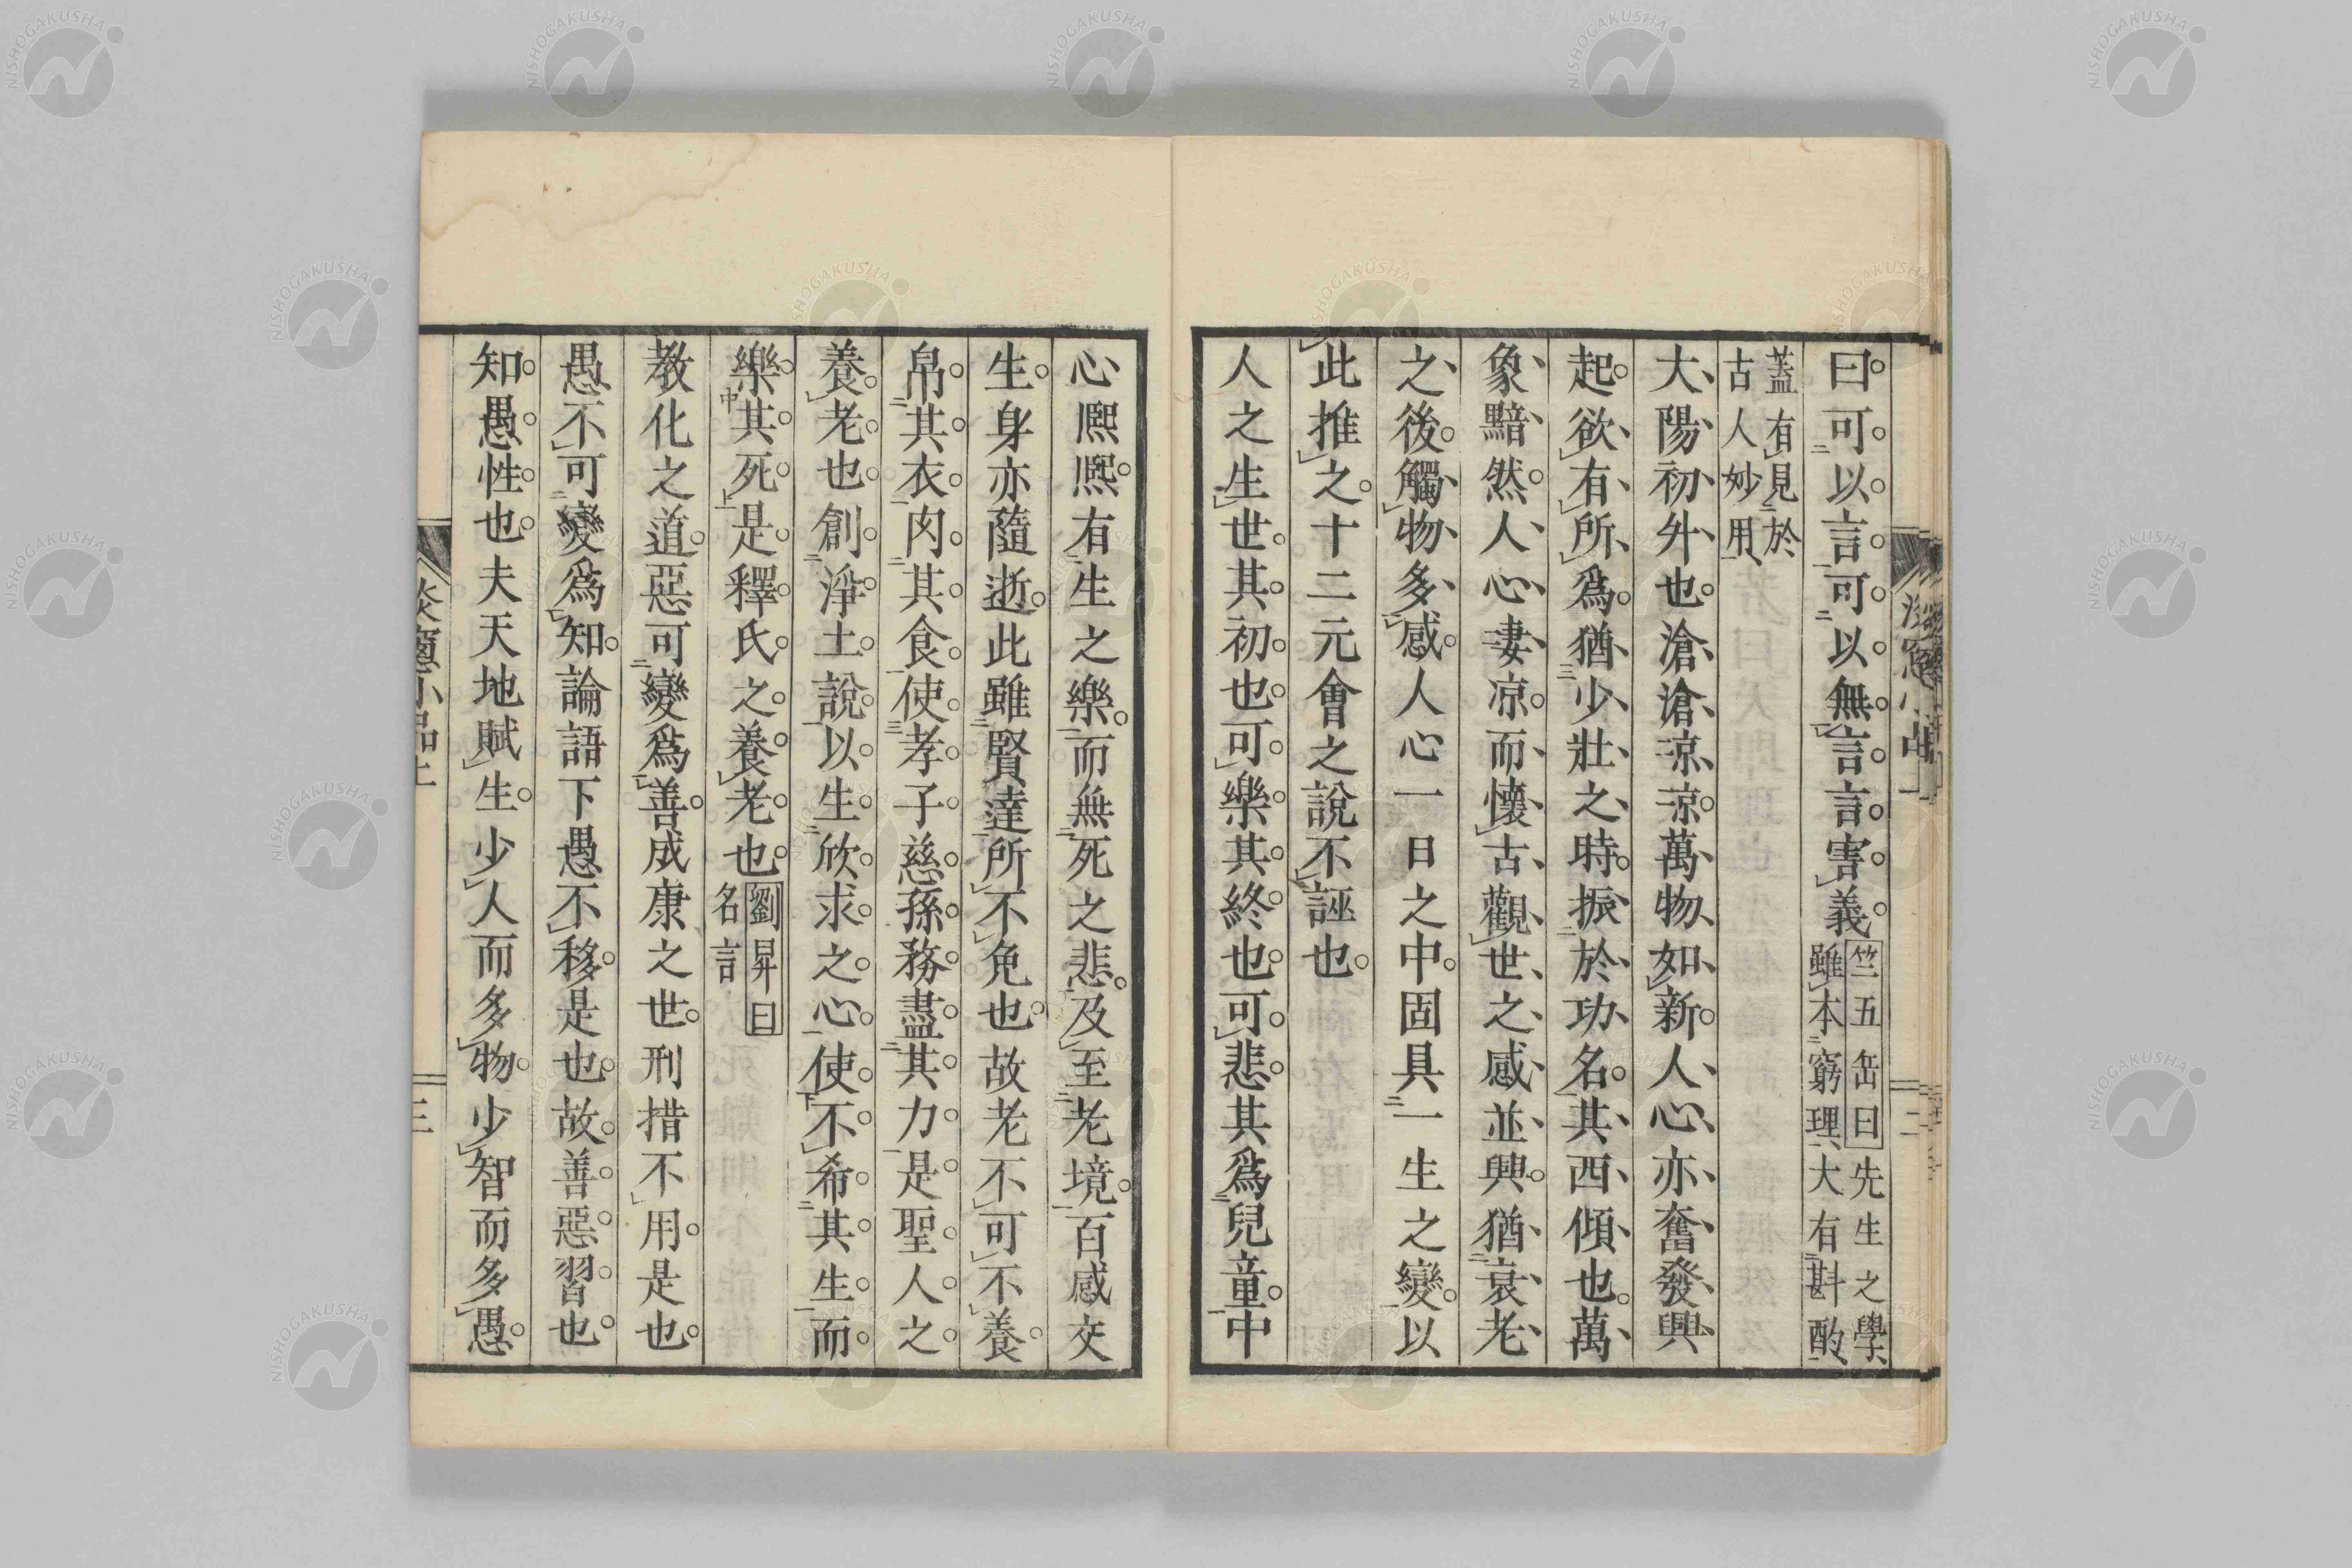 曰可以言可以無言言害義竺五岳曰先生之學雖本窮理大有斟酌
蓋有見於古人妙用
大陽初升也滄滄凉凉萬物如新人心亦奮發興
起欲有所爲猶少壯之時振於功名其西傾也萬
象黯然人心凄凉而懷古觀世之感並興猶哀老
之後觸物多感人心一日之中固具一生之變以
此推之十二元會之說不誣也
人之生世其初也可樂其終也可悲其爲兒童中
心熈熈有生之樂而無死之悲及至老境百感交
生身亦隨逝此雖賢達所不免也故老不可不養
帛其衣肉其食使孝子慈孫務盡其力是聖人之
養老也創淨土說以生欣求之心使不希其生而
樂其死是釋氏之養老也劉昇曰名言
教化之道惡可變爲善成康之世刑措不用是也
愚不可變爲知論語下愚不移是也故善惡習也
知愚性也夫天地賦生少人而多物少智而多愚
談窻小品上
三
NISHOGAKUSHA